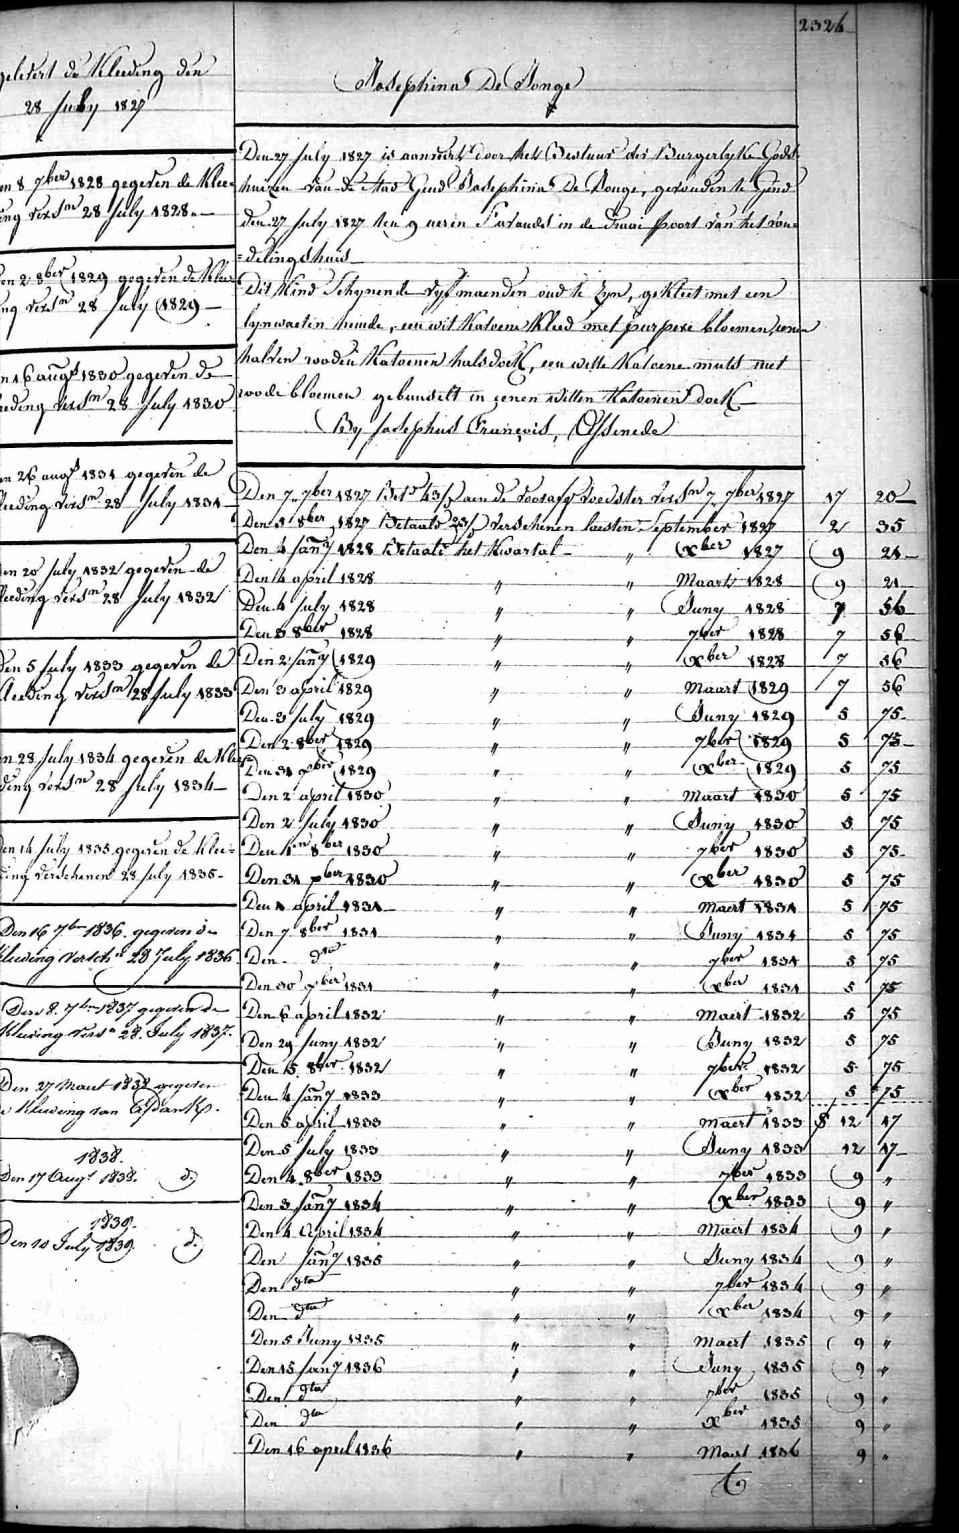 2326
gelevert de Kleeding den
28 July 1827
en 8 7ber 1828 gegeven de Klee=
ding versn 28 July 1828.
en 2 8ber 1829 gegeven de Klee=
ng versn 28 July 1829
en 16 augt 1830 gegeven de
eeding versn 28 July 1830
en 26 augt 1831 gegeven de
leeding versn 28 July 1831
en 20 July 1832 gegeven de
leeding versn 28 July 1832
Den 5 July 1833 gegeven de
leeding versn 28 July 1833
en 28 July 1834 gegeven de Klee
ding versn 28 July 1834
en 14 July 1835 gegeven de Klee=
ding verschenen 28 July 1835
Den 16 7ber 1836. gegeven de
kleeding versch. 28 July 1836
Den 8. 7ber 1837 gegeven de
Kleeding versn 28. July 1837.
Den 27 Maert 1838 gegeven
de Kleeding van
1838.
Den 17 Augt 1838. d.
1839.
Den 10 July 1839. d.
Josephina De Jonge
Den 27 July 1827 is aanveert door het Bestuur der Burgerlyke Gods=
huizen van de stad Gend Josephina De Jonge, gevonden te Gend
den 27 July 1827 ten 9 ueren s'avonds in de Draai poort van het von=
=delingshuis
Dit Kind Schynende vyf maenden oud te zyn, gekleet met een
lynwaetin hemde, een wit Katoene Kleed met purpere bloemen, eenen
halven rooden Katoenen halsdoek, een witte Katoene muts met
roode bloemen gebundelt in eenen witten Katoenen doek
By Josephus François, Assenede
Den 7. 7ber 1827 Betd 43/ aen de voedster versn 7 7ber 1827 17 20
Den 5 8ber 1827 Betaald 23/ verschenen laesten September 1827 2 35
Den 4 Jany 1828 Betaald het Kwartal " xber 1827 9 21
Den 14 april 1828 " " Maart 1828 9 21
Den 4 July 1828 " " Juny 1828 7 56
Den 3 8ber 1828 " " 7ber 1828 7 56
Den 2 Jany 1829 " " xber 1828 7 56
Den 3 april 1829 " " Maart 1829 7 56
Den 3 July 1829 " " Juny 1829 5 75
Den 2 8ber 1829 " " 7ber 1829 5 75
Den 31 xber 1829 " " xber 1829 5 75
Den 2 april 1830 " " Maart 1830 5 75
Den 2 July 1830 " " Juny 1830 5 75
Den 1en 8ber 1830 " " 7ber 1830 5 75
Den 31 xber 1830 " " xber 1830 5 75
Den 1 april 1831 " " Maert 1831 5 75
Den 7 8ber 1831 " " Juny 1831 5 75
Den dto " " 7ber 1831 5 75
Den 30 xber 1831 " " xber 1831 5 75
Den 6 april 1832 " " Maert 1832 5 75
Den 29 Juny 1832 " " Juny 1832 5 75
Den 5 8ber 1832 " " 7ber 1832 5 75
Den 4 Jany 1833 " " xber 1832 5 75
Den 5 april 1833 " " Maert 1833 12 17
Den 5 July 1833 " " Juny 1833 12 17
Den 4 8ber 1833 " " 7ber 1833 9 "
Den 3 Jany 1834 " " xber 1833 9 "
Den 4 April 1834 " " Maert 1834 9 "
Den Jany 1835 " " Juny 1834 9 "
Den dto " " 7ber 1834 9 "
Den dto " " xber 1834 9 "
Den 5 Juny 1835 " " Maert 1835 9 "
Den 15 Jany 1836 " " Juny 1835 9 "
Den dto " " 7ber 1835 9 "
Den dto " " xber 1835 9 "
Den 16 april 1836 " " Maert 1836 9 "